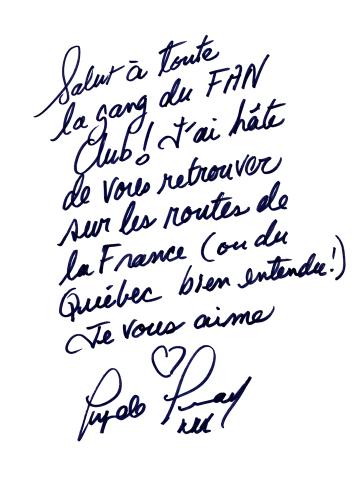 Salut à toute
la gang du FAN
Club! J'ai hâte
de vous retrouver
sur les routes de
la France (ou du
Québec bien entendu!)
Je vous aime